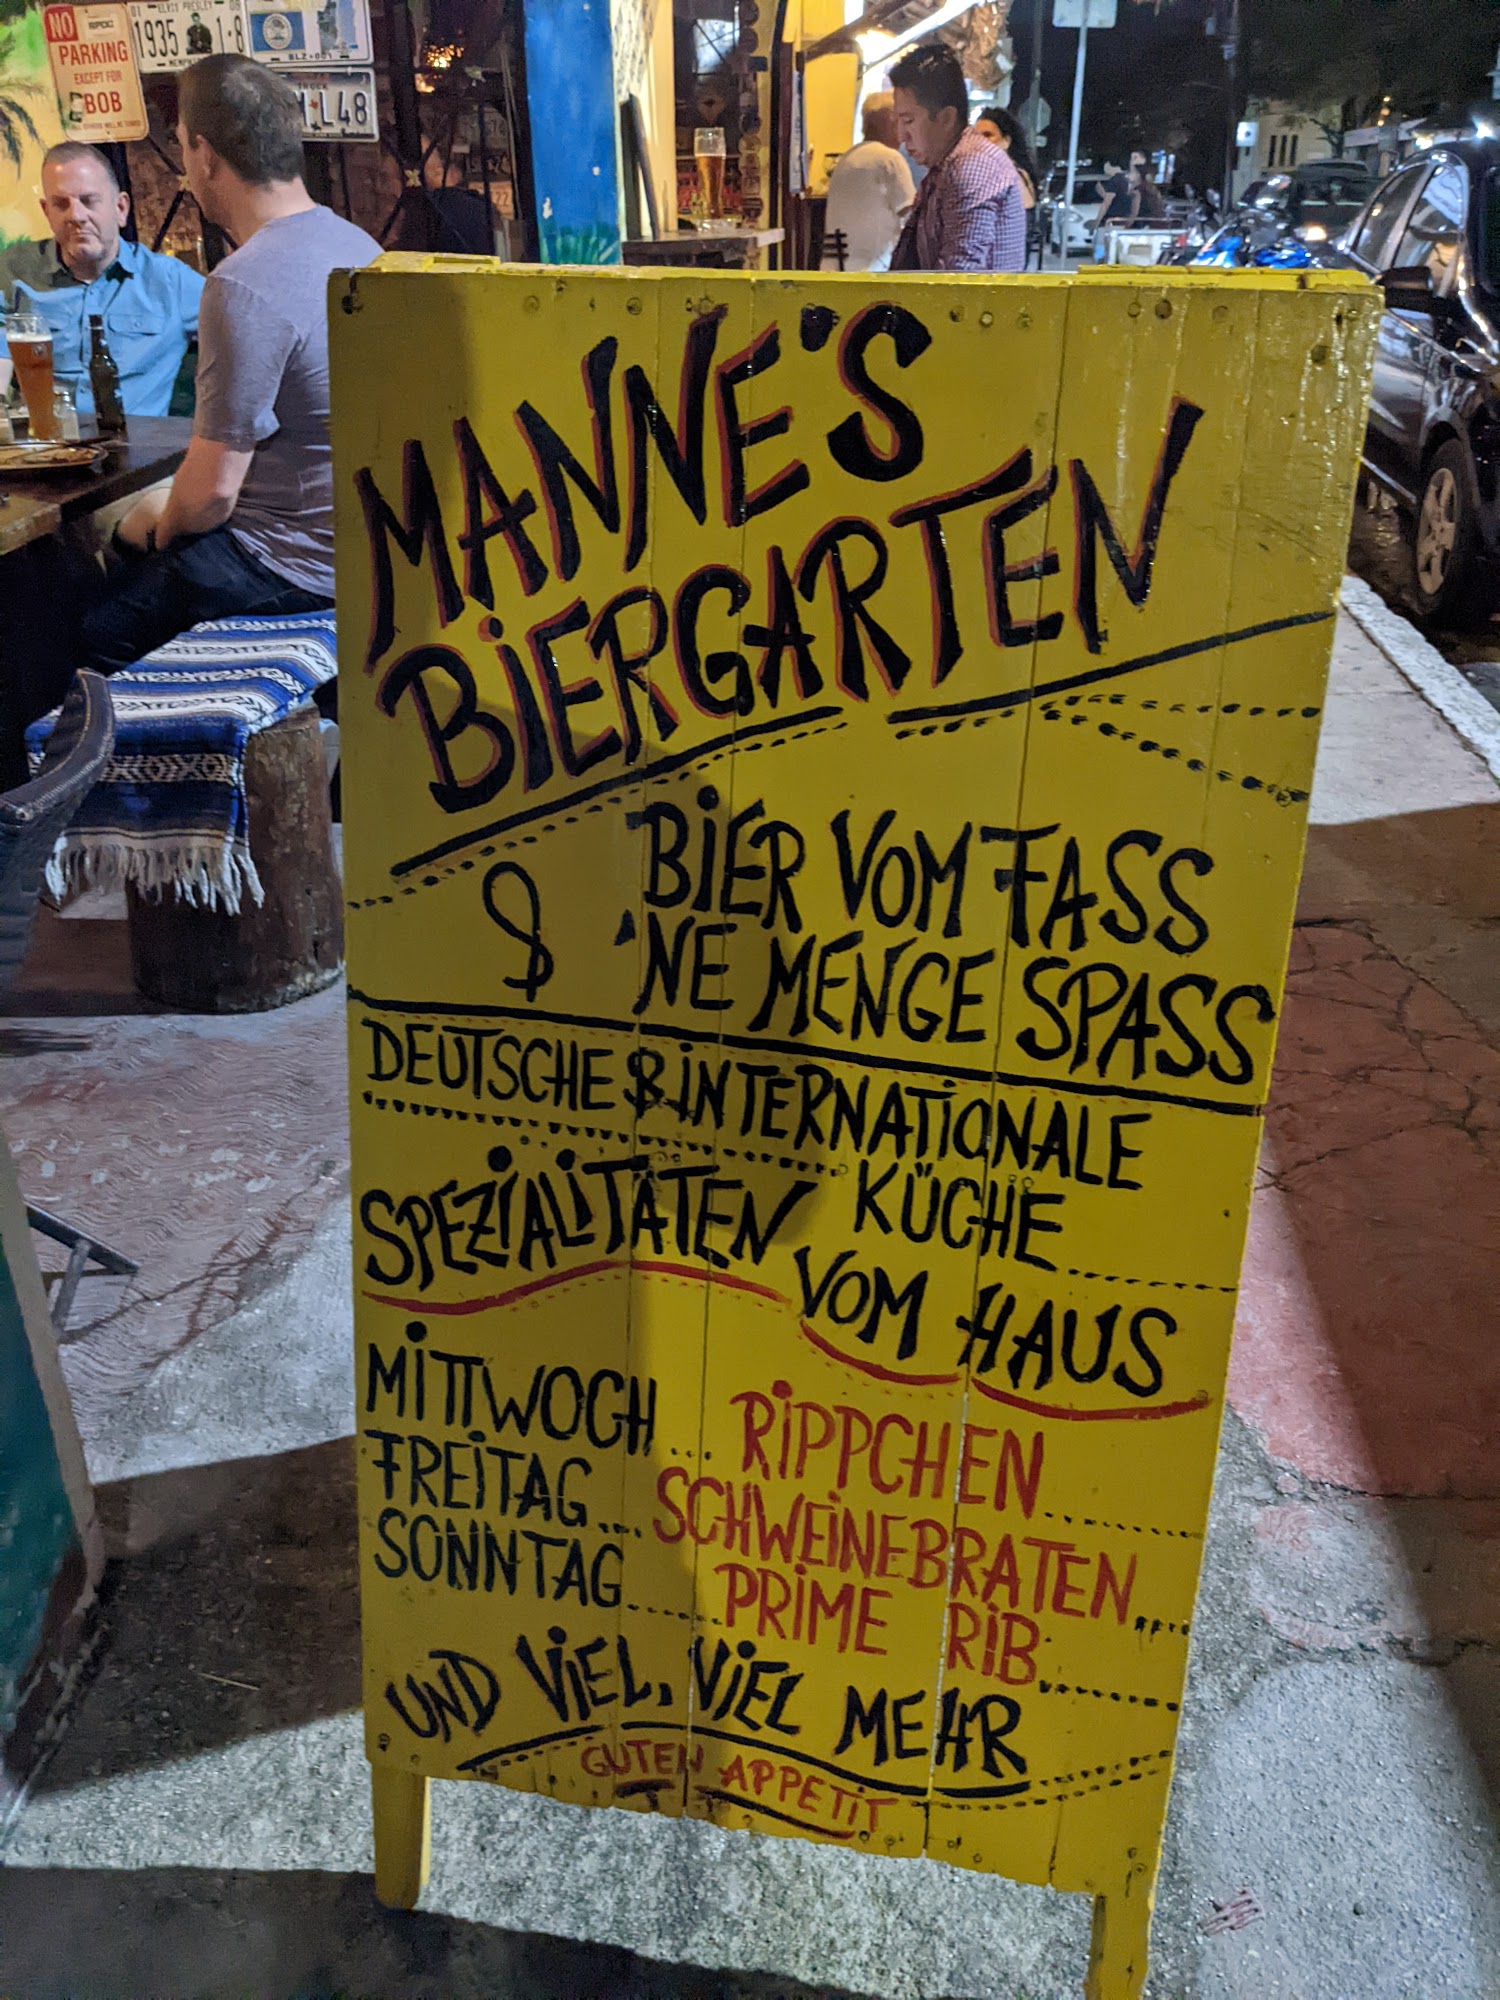 NO
PARKING
EXCEPT FOR
BOB
1935 1-8
BLZ•001
L48
MANNE'S
BIERGARTEN
BIER VOM FASS
& 'NE MENGE SPASS
DEUTSCHE & INTERNATIONALE
KÜCHE
SPEZIALITÄTEN
VOM HAUS
MITTWOCH... RIPPCHEN
FREITAG.... SCHWEINEBRATEN
SONNTAG...... PRIME RIB
UND VIEL, VIEL MEHR
GUTEN APPETIT